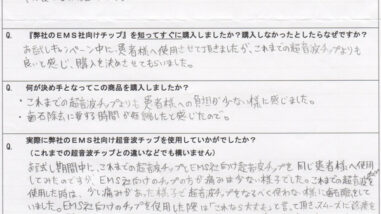 Q. 『弊社のEMS社向けチップ』を知ってすぐに購入しましたか？購入しなかったとしたらなぜですか？
お試しキャンペーン中に、患者様へ使用させて頂きましたが、これまでの超音波チップよりも
良いと感じ、購入を決めさせてもらいました。
Q. 何が決め手となってこの商品を購入しましたか？
・これまでの超音波チップよりも患者様への負担が少ない様に感じました。
・歯石除去に要する時間が短縮したと感じたので。
Q. 実際に弊社のEMS社向け超音波チップを使用していかがでしたか？
（これまでの超音波チップとの違いなどでも構いません）
お試し期間中に、これまでの超音波チップとEMS社向け超音波チップを同じ患者様へ使用
してみたのですが、EMS社向けのチップの方が痛みは少ない様子でした。これまでの超音波を
使用した時は、少し痛みがあった様子で超音波チップをなるべく使わない様に歯石除去をして
いました。EMS社向けのチップを使用した際は「これなら大丈夫」と言って頂きスムーズに治療を